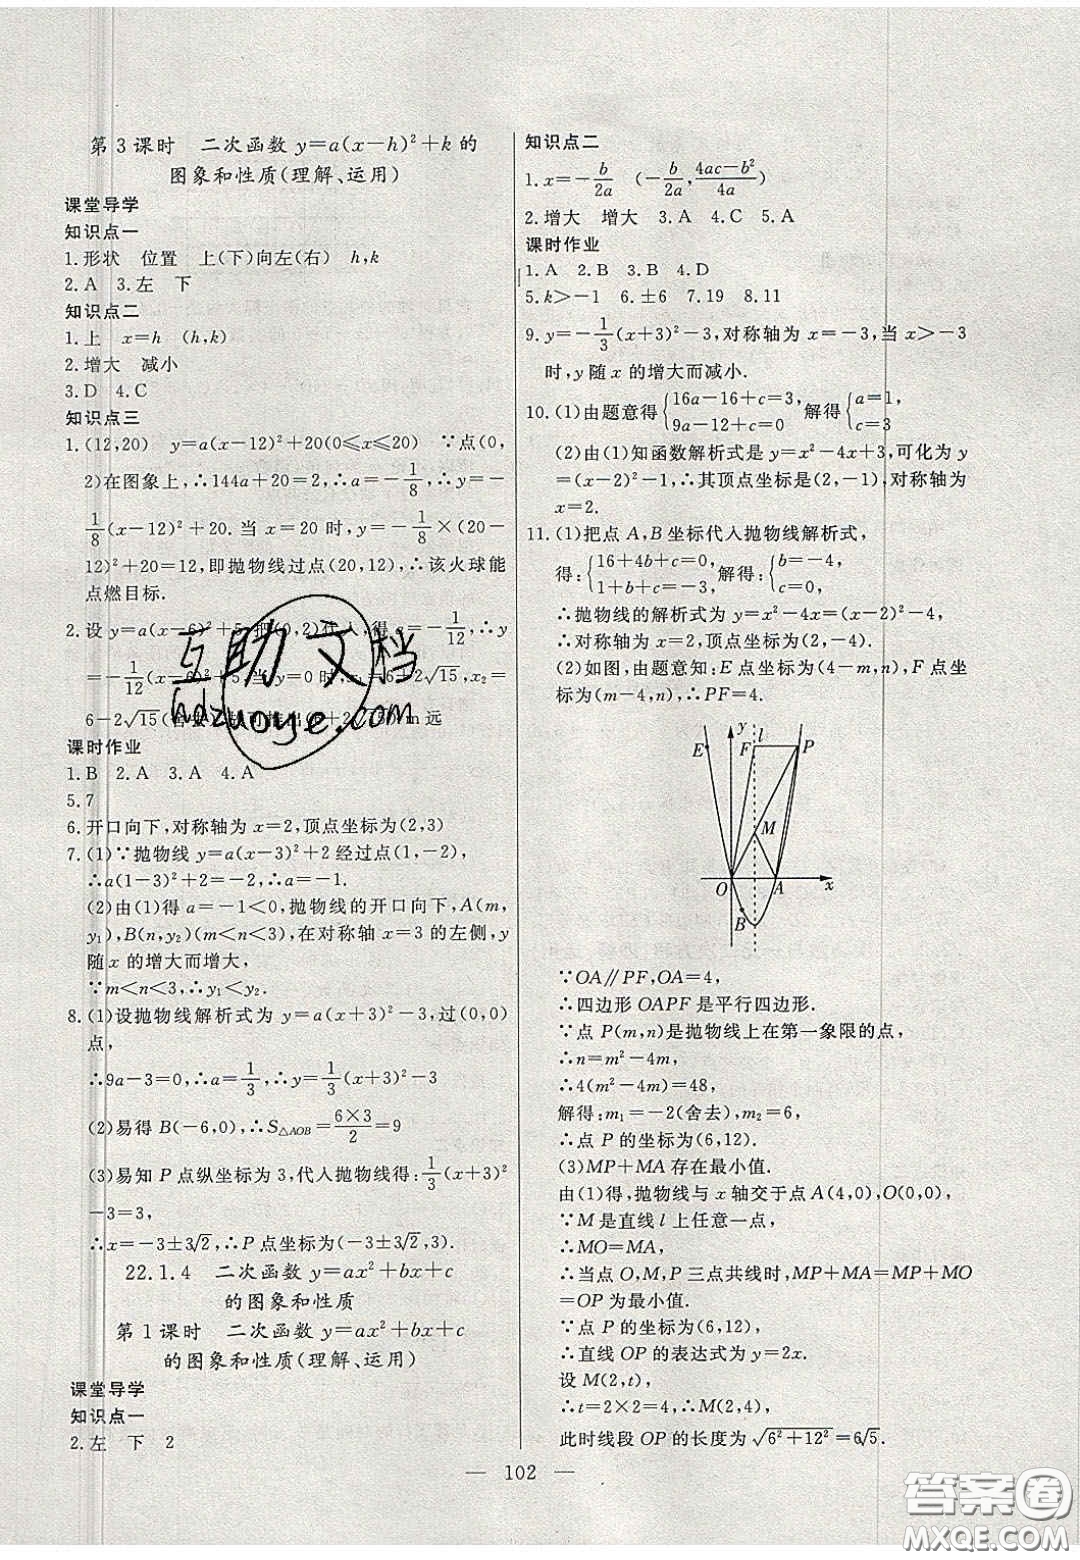 第3课时 二次函数 y=a(x-h)²+k 的
图象和性质(理解、运用)
课堂导学
知识点一
1.形状 位置 上(下)向左(右) h,k
2.A 3.左 下
知识点二
1.上 x=h (h,k)
2.增大 减小
3.D 4.C
知识点三
1.(12,20) y=a(x-12)²+20(0≤x≤20) ∵点(0,
2)在图象上,∴144a+20=2,∴a=-1/8,∴y=-
1/8(x-12)²+20.当x=20时,y=-1/8×(20-
12)²+20=12,即抛物线过点(20,12),∴该火球能
点燃目标.
2.设 y=a(x-6)²+5,把(0,2)代入,得 a=-1/12,∴y
=-1/12(x-6)²+5,当 y=0 时,x₁=6+2√15,x₂=
6-2√15(舍去),
m远
课时作业
1.B 2.A 3.A 4.A
5.7
6.开口向下,对称轴为 x=2,顶点坐标为(2,3)
7.(1)∵抛物线 y=a(x-3)²+2 经过点(1,-2),
∴a(1-3)²+2=-2,∴a=-1.
(2)由(1)得 a=-1<0,抛物线的开口向下,A(m,
y₁),B(n,y₂)(m<n<3),在对称轴 x=3 的左侧,y
随 x 的增大而增大,
∵m<n<3,∴y₁<y₂.
8.(1)设抛物线解析式为 y=a(x+3)²-3,过(0,0)
点,
∴9a-3=0,∴a=1/3,∴y=1/3(x+3)²-3
(2)易得 B(-6,0),∴S△AOB=6×3/2=9
(3)易知 P 点纵坐标为 3,代入抛物线得:1/3(x+3)²
-3=3,
∴x=-3±3√2,∴P 点坐标为(-3±3√2,3).
22.1.4 二次函数 y=ax²+bx+c
的图象和性质
第1课时 二次函数 y=ax²+bx+c
的图象和性质(理解、运用)
课堂导学
知识点一
2.左 下 2
知识点二
1.x=-b/2a (-b/2a,4ac-b²/4a)
2.增大 增大 3.A 4.C 5.A
课时作业
1.A 2.B 3.B 4.D
5.k>-1 6.±6 7.19 8.11
9.y=-1/3(x+3)²-3,对称轴为 x=-3,当 x>-3
时,y 随 x 的增大而减小.
10.(1)由题意得{16a-16+c=3, 9a-12+c=0 解得{a=1, c=3
(2)由(1)知函数解析式是 y=x²-4x+3,可化为 y
=(x-2)²-1,∴其顶点坐标是(2,-1),对称轴为
x=2.
11.(1)把点 A,B 坐标代入抛物线解析式,
得:{16+4b+c=0, 1+b+c=-3 解得:{b=-4, c=0.
∴抛物线的解析式为 y=x²-4x=(x-2)²-4,
∴对称轴为 x=2,顶点坐标为(2,-4).
(2)如图,由题意知:E 点坐标为(4-m,n),F 点坐
标为(m-4,n),∴PF=4.
E y F l P
M
O A x
B
∵OA∥PF,OA=4,
∴四边形 OAPF 是平行四边形.
∵点 P(m,n)是抛物线上在第一象限的点,
∴n=m²-4m,
∴4(m²-4m)=48,
解得:m₁=-2(舍去),m₂=6,
∴点 P 的坐标为(6,12).
(3)MP+MA 存在最小值.
由(1)得,抛物线与 x 轴交于点 A(4,0),O(0,0),
∵M 是直线 l 上任意一点,
∴MO=MA,
∴当点 O,M,P 三点共线时,MP+MA=MP+MO
=OP 为最小值.
∵点 P 的坐标为(6,12),
∴直线 OP 的表达式为 y=2x.
设 M(2,t),
∴t=2×2=4,∴M(2,4),
此时线段 OP 的长度为 √6²+12²=6√5.
— 102 —
互助文档
hdzuoye.com
答案圈
MXQE.COM